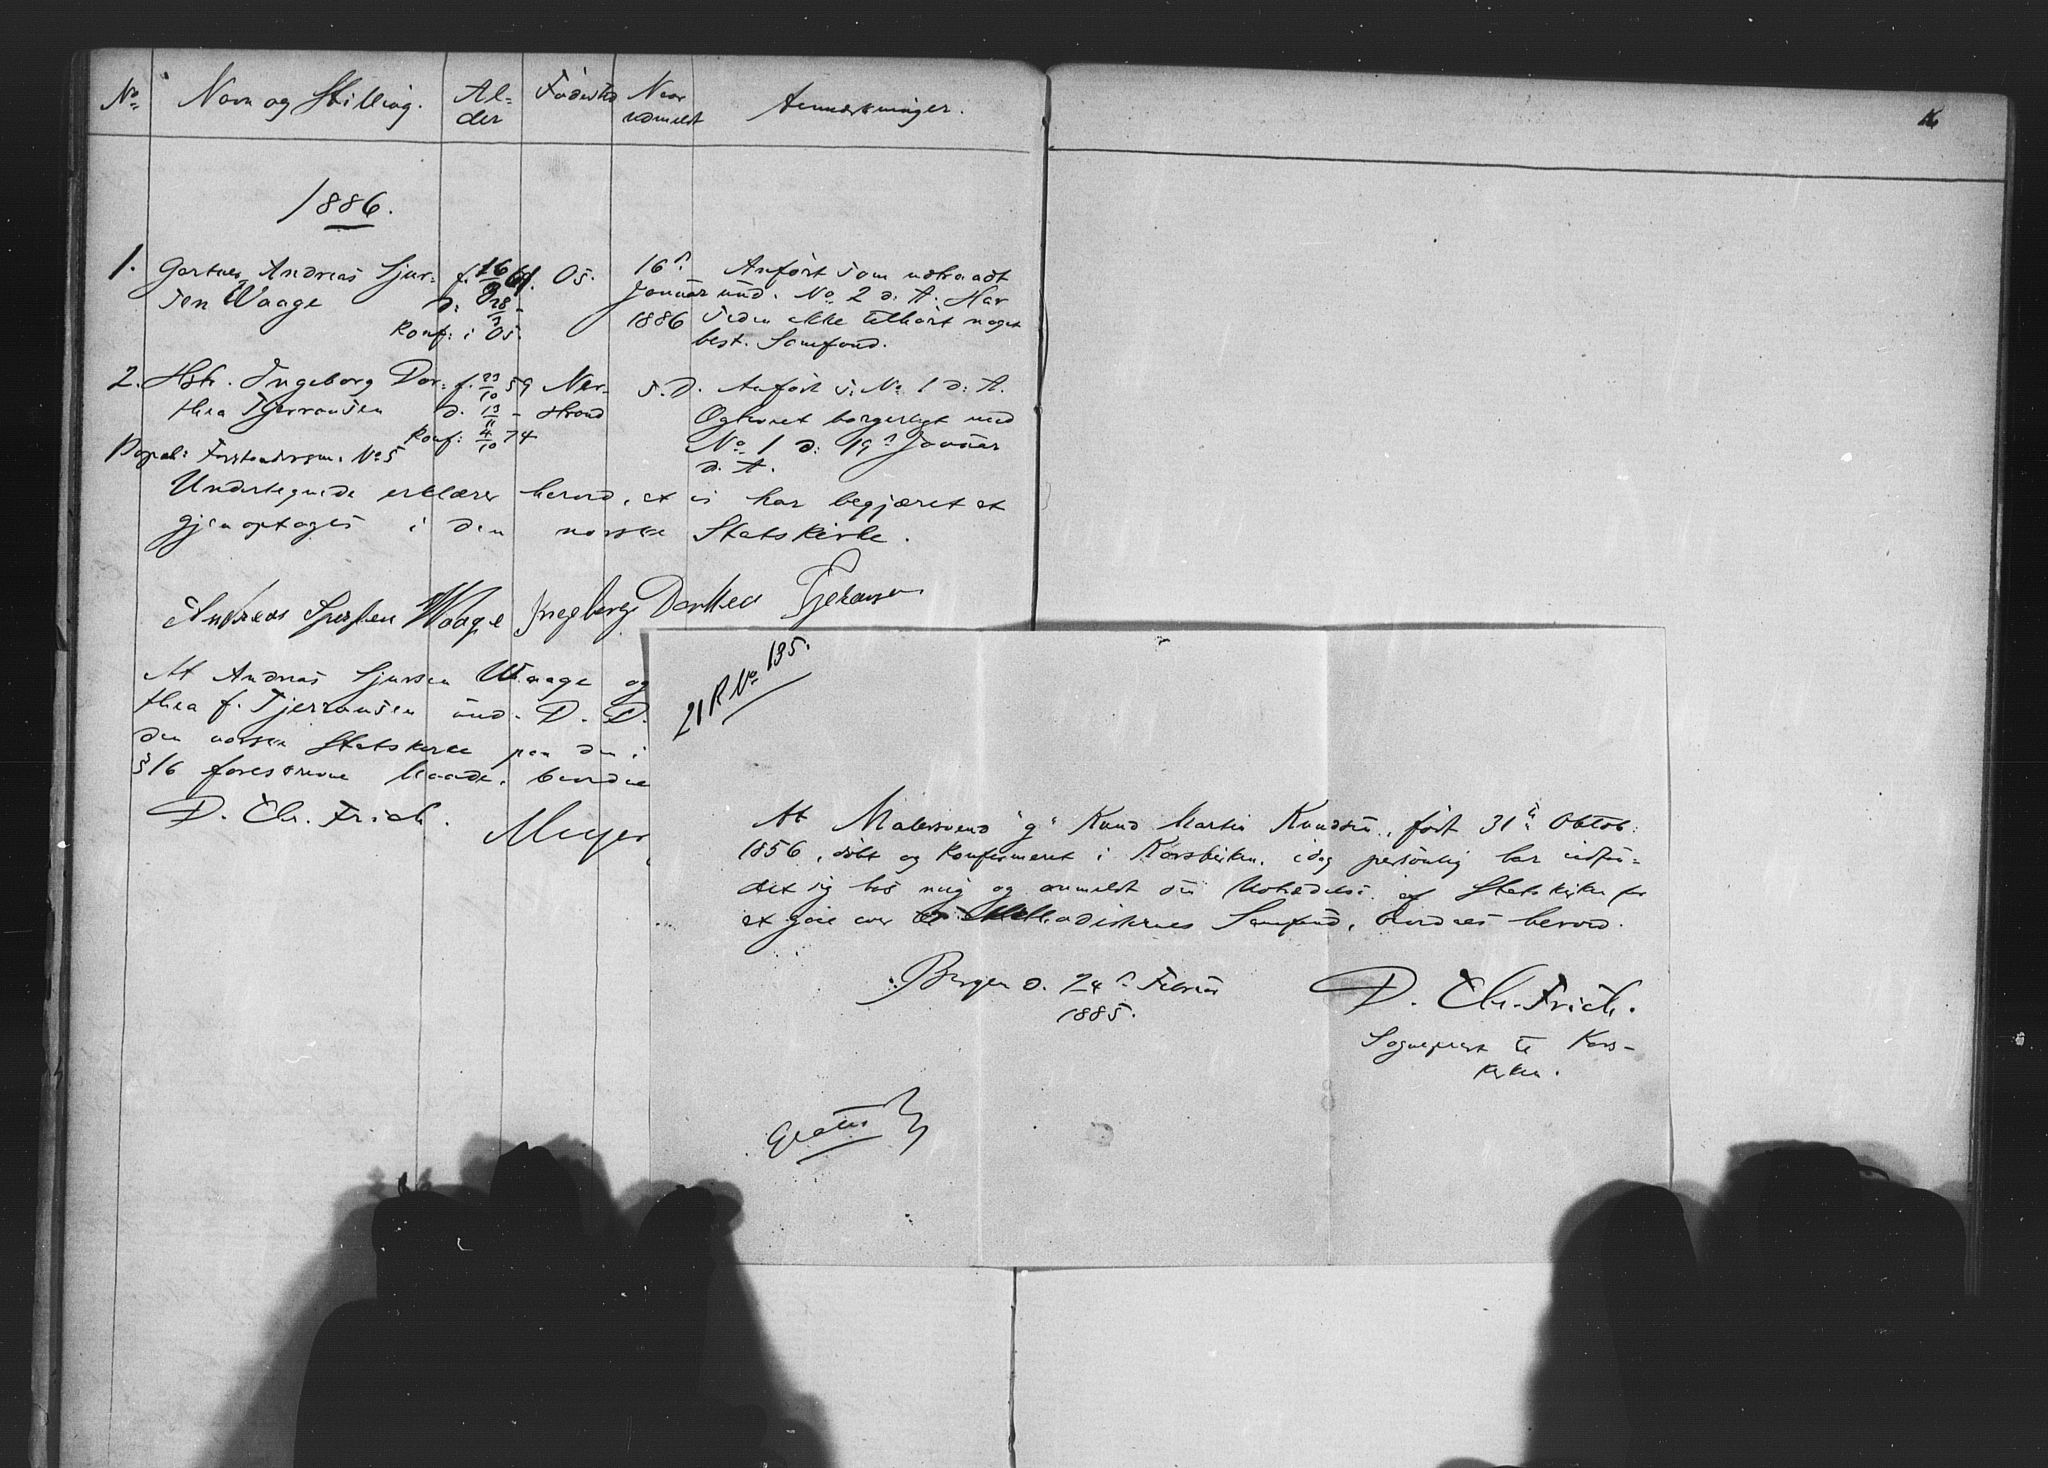 No. Navn og Stilling. Al- Fødested Naar Anmærkninger.
der udmeldt
16
1886.
1. Gartner Andreas Sjur- f. 16/2 61. Os. 16de Anført som udtraadt
sen Waage d: 28/3 - Januar und. No 2 d. A. Har
Konf: i Os. 1886 siden ikke tilhørt noget
best. Samfund.
2. Hstr. Ingeborg Dor- f. 23/10 59 Ner- s. D. Anført s. No 1 d. A.
thea Tjerransen d. 13/11 - strand Ogteviet borgerligt med
Konf: 4/10 74 No 1 d: 19de Januar
d. A.
Forstandersm. No 5
Undertegnede erklærer herved, at vi har begjæret at
gjenoptages i den norske Statskirke.
Andreas Sjursen Waage Ingeborg Dorthea Tjeransen
At Andreas Sjursen Waage og
thea f. Tjerransen und. D. D.
den norske Statskirke paa den i
§ 16 foreskrevne Maade, bevidnes
D. Chr. Frich. Meyer
21 R No 135.
At Malersvend "g" Knud Martin Knudsen, født 31te Oktob:
1856, døbt og konfirmeret i Korskirken, idag personlig har indfun-
det sig hos mig og anmeldt sin Udtrædelse af Statskirken for
at gaa over til Methodisternes Samfund, bevidnes herved.
Bergen d. 24de Februar
1885.
D. Chr. Frich.
Sognepræst til Kors-
kirken.
Gratis